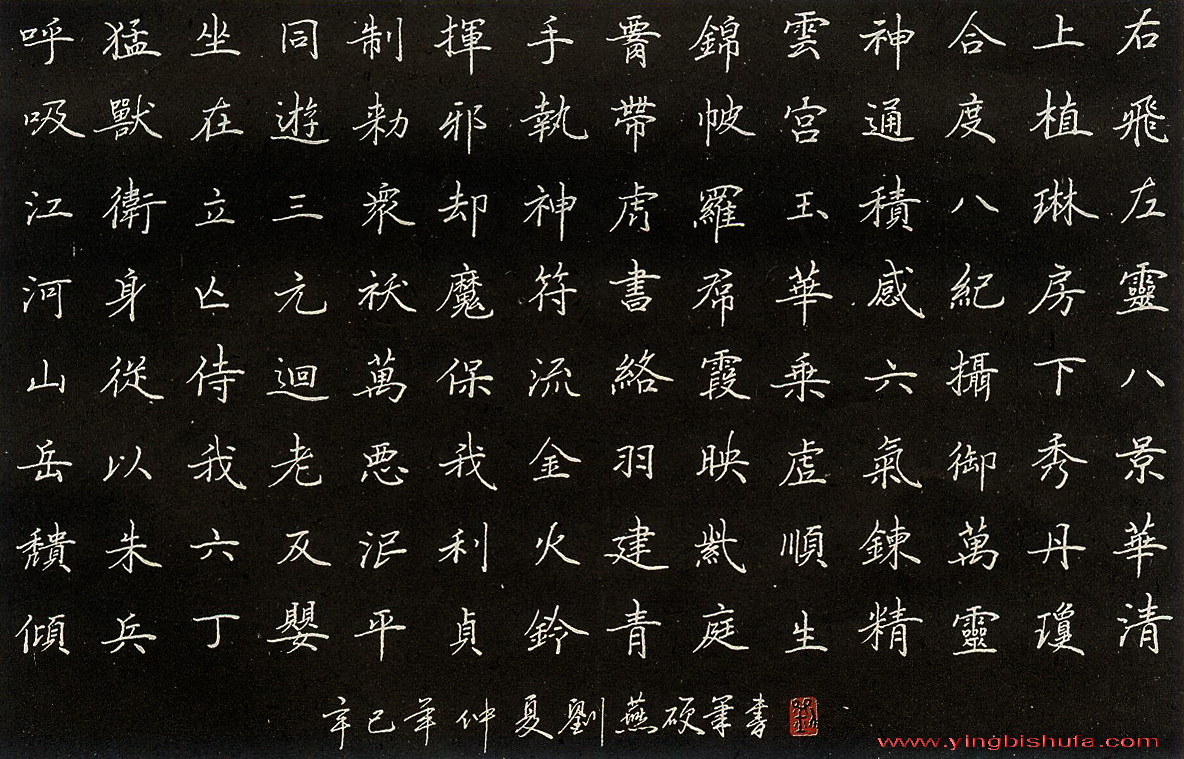 右飛左靈八景華清
上植琳房下秀丹瓊
合度八紀攝御萬靈
神通積感六氣鍊精
雲宮玉華乘虛順生
錦帔羅帬霞映紫庭
腰帶虎書絡羽建青
手執神符流金火鈴
揮邪却魔保我利貞
制勑衆祅萬惡泯平
同遊三元迴老反嬰
坐在立亡侍我六丁
猛獸衛身從以朱兵
呼吸江河山岳穨傾
辛巳年仲夏劉燕硬筆書
www.yingbishufa.com